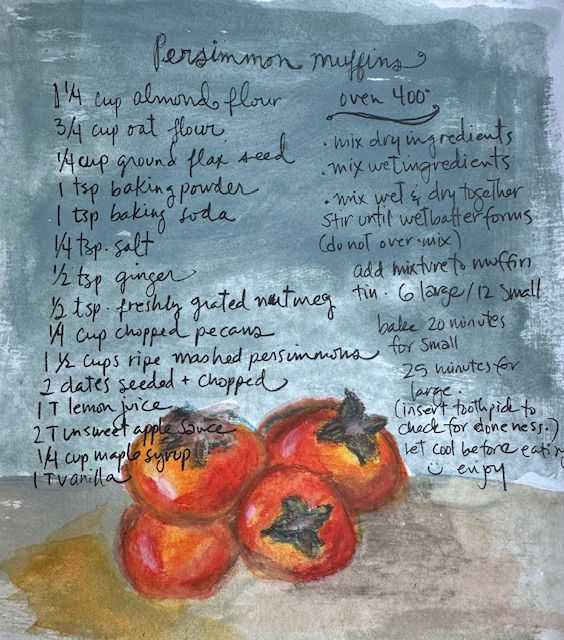 Persimmon muffins
1 1/4 cup almond flour
3/4 cup oat flour
1/4 cup ground flax seed
1 tsp baking powder
1 tsp baking soda
1/4 tsp. salt
1/2 tsp ginger
1/2 tsp. freshly grated nutmeg
1/4 cup chopped pecans
1 1/2 cups ripe mashed persimmons
2 dates seeded + chopped
1 T lemon juice
2 T unsweet apple sauce
1/4 cup maple syrup
1 T vanilla
oven 400°
• mix dry ingredients
• mix wet ingredients
• mix wet & dry together
stir until wet batter forms
(do not over-mix)
add mixture to muffin
tin. 6 large / 12 small
bake 20 minutes
for small
25 minutes for
large
(insert toothpick to
check for doneness.)
Let cool before eating
enjoy